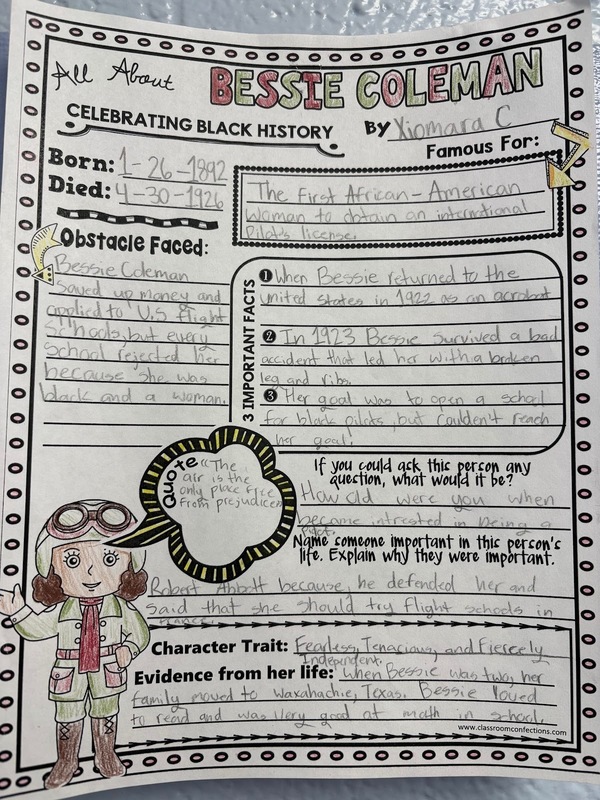 All About BESSIE COLEMAN
CELEBRATING BLACK HISTORY
By Xiomara C
Born: 1-26-1892
Died: 4-30-1926
Famous For:
The First African-American
woman to obtain an international
Pilot's license.
Obstacle Faced:
Bessie Coleman
Saved up money and
applied to U.S flight
Schools, but every
School rejected her
because she was
black and a woman.
3 IMPORTANT FACTS
1 When Bessie returned to the
united states in 1922 as an acrobat
2 In 1923 Bessie Survived a bad
accident that led her with a broken
leg and ribs.
3 Her goal was to open a school
for black pilots, but couldn't reach
her goal.
Quote "The
air is the
only place free
from prejudice"
If you could ask this person any
question, what would it be?
How old were you when
became intrested in being a
pilot.
Name someone important in this person's
life. Explain why they were important.
Robert Abbott because, he defended her and
Said that she should try flight schools in
France.
Character Trait: Fearless, Tenacious, and Fiercely
Independent.
Evidence from her life: When Bessie was two, her
family moved to Waxahachie, Texas. Bessie loved
to read and was very good at math in school.
www.classroomconfections.com